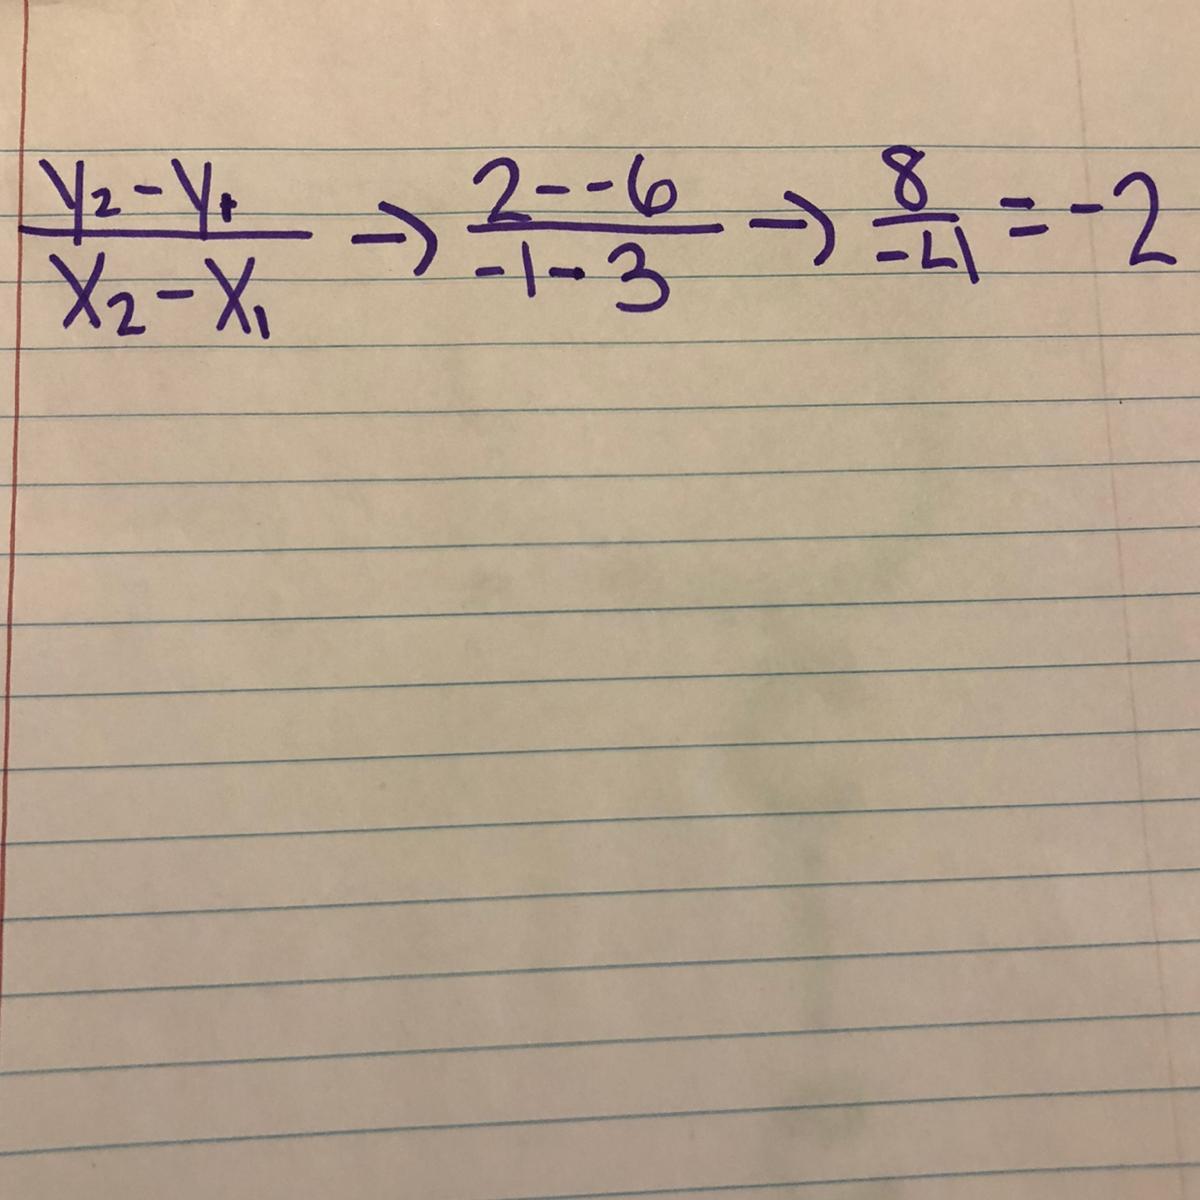 y₂-y₁ / x₂-x₁ → 2--6 / -1-3 → 8 / -4 = -2